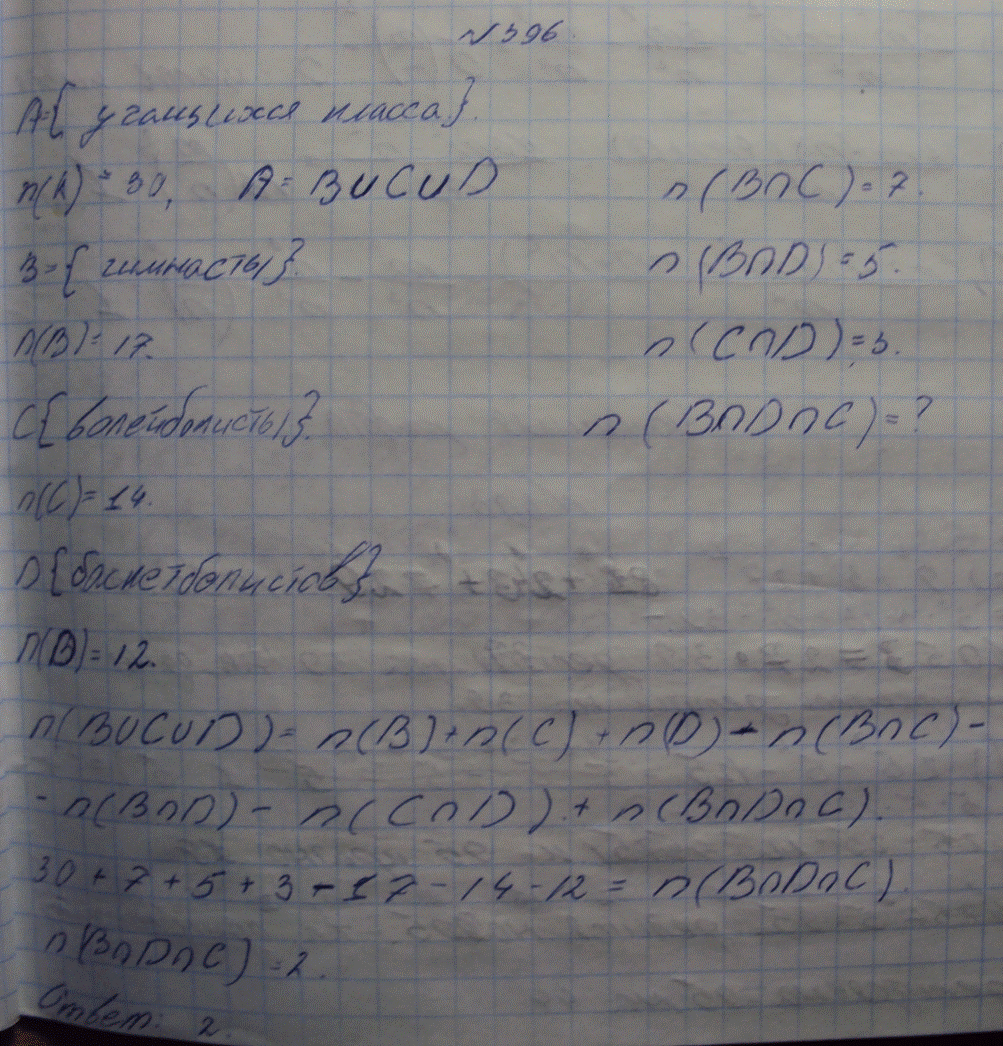 №396.
A={учащихся класса}.
n(A)=30, A=B∪C∪D n(B∩C)=7.
B={гимнасты}. n(B∩D)=5.
n(B)=17. n(C∩D)=3.
C{волейболисты}. n(B∩D∩C)=?
n(C)=14.
D{баскетболистов}
n(D)=12.
n(B∪C∪D)=n(B)+n(C)+n(D)-n(B∩C)-
-n(B∩D)-n(C∩D)+n(B∩D∩C).
30+7+5+3-17-14-12=n(B∩D∩C).
n(B∩D∩C)=2.
Ответ: 2.